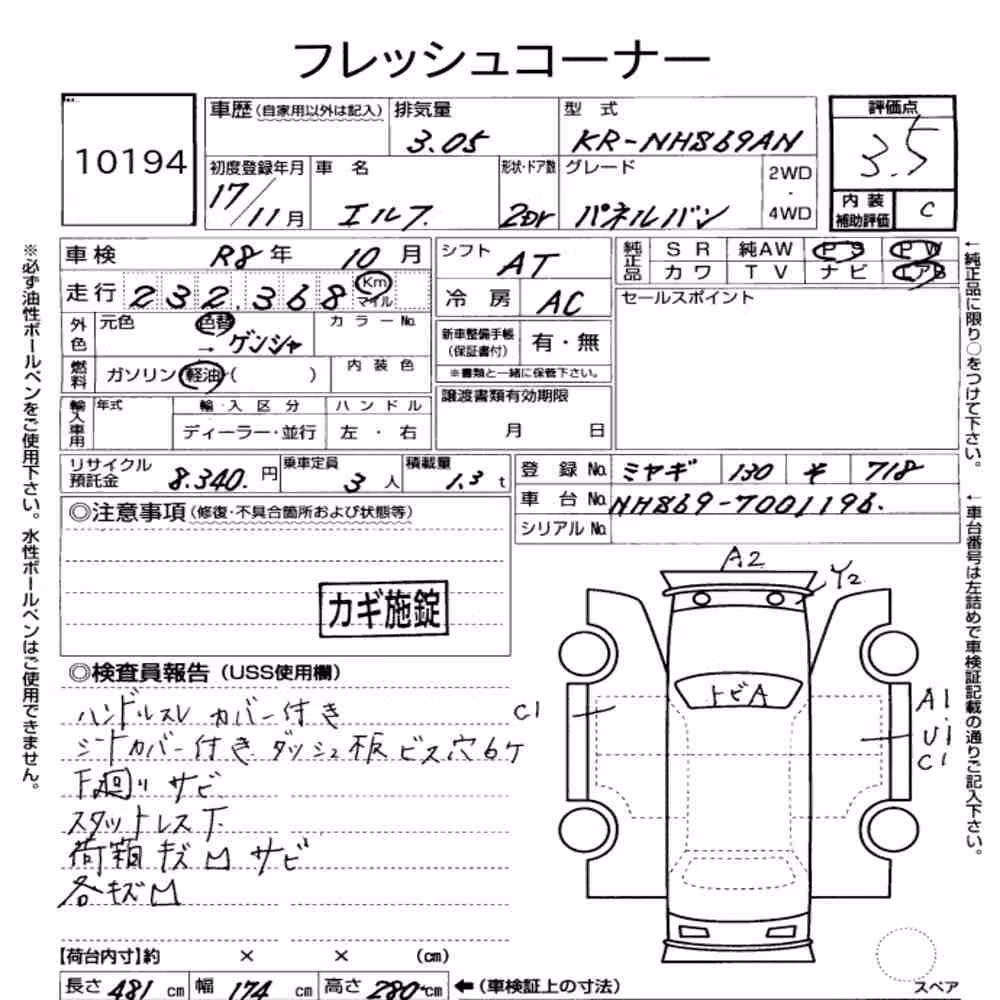 フレッシュコーナー
10194
車歴(自家用以外は記入) 排気量 3.05 型式 KR-NH869AN
評価点 3.5
内装補助評価 C
初度登録年月 17/11月 車名 エルフ 形状・ドア数 2Dr グレード パネルバン 2WD・4WD
車検 R8年 10月
走行 232,368 Km マイル
外色 元色 色替 → ゲンシャ カラーNo.
燃料 ガソリン 軽油 ( ) 内装色
輸入車用 年式 輸入区分 ディーラー・並行 ハンドル 左・右
シフト AT
冷房 AC
新車整備手帳(保証書付) 有・無
※書類と一緒に保管下さい。
譲渡書類有効期限 月 日
純正品 SR 純AW PS PW
カワ TV ナビ エアB
セールスポイント
リサイクル預託金 8.340. 円 乗車定員 3人 積載量 1.3 t
登録No. ミヤギ 130 718
車台No. NH869-7001196.
シリアルNo.
◎注意事項(修復・不具合箇所および状態等)
カギ施錠
◎検査員報告(USS使用欄)
ハンドルスレ カバー付き
シートカバー付き ダッシュ板ビス穴6ケ
下廻りサビ
スタットレス下
荷箱キズ凹サビ
各キズ凹
A2
Y2
トビA
C1
A1
U1
C1
【荷台内寸】約 × × (cm)
長さ 481 cm 幅 174 cm 高さ 280 cm ←(車検証上の寸法)
スペア
※必ず油性ボールペンをご使用下さい。水性ボールペンはご使用できません。
←純正品に限り○をつけて下さい。
←車台番号は左詰めで車検証記載の通りご記入下さい。